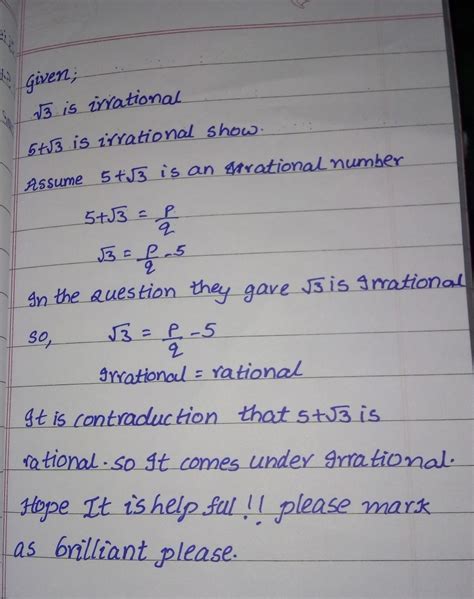 Given;
√3 is irrational
5+√3 is irrational show.
Assume 5+√3 is an irrational number
5+√3 = p/q
√3 = p/q -5
In the question they gave √3 is Irrational
so, √3 = p/q -5
Irrational = rational
It is contraduction that 5+√3 is
rational. so It comes under Irrational.
Hope It is helpful!! please mark
as brilliant please.